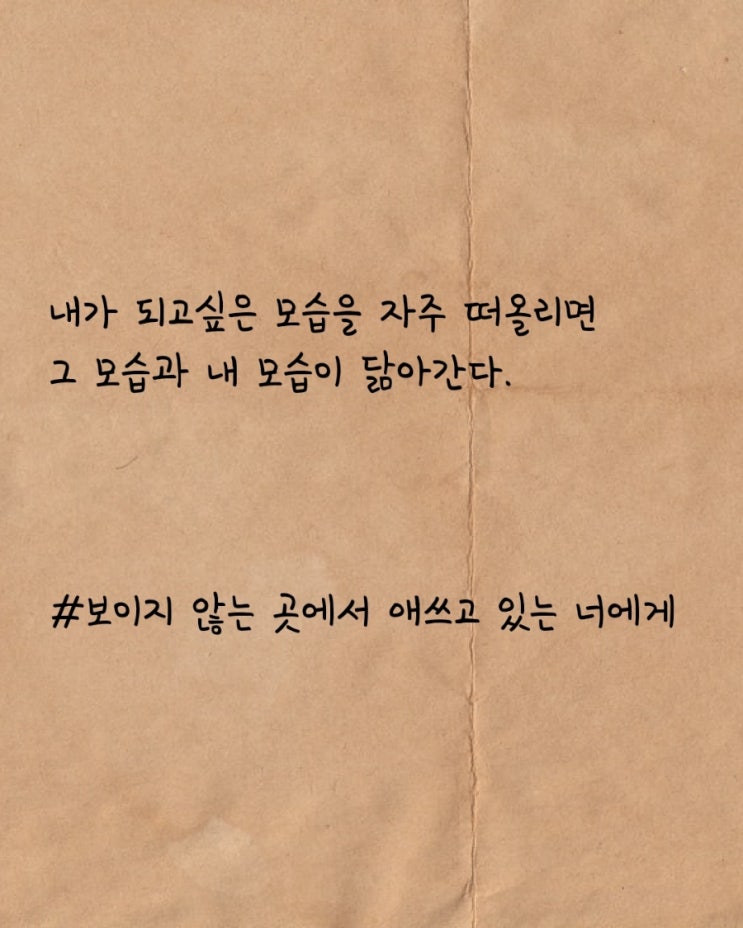 내가 되고싶은 모습을 자주 떠올리면
그 모습과 내 모습이 닮아간다.
#보이지 않는 곳에서 애쓰고 있는 너에게